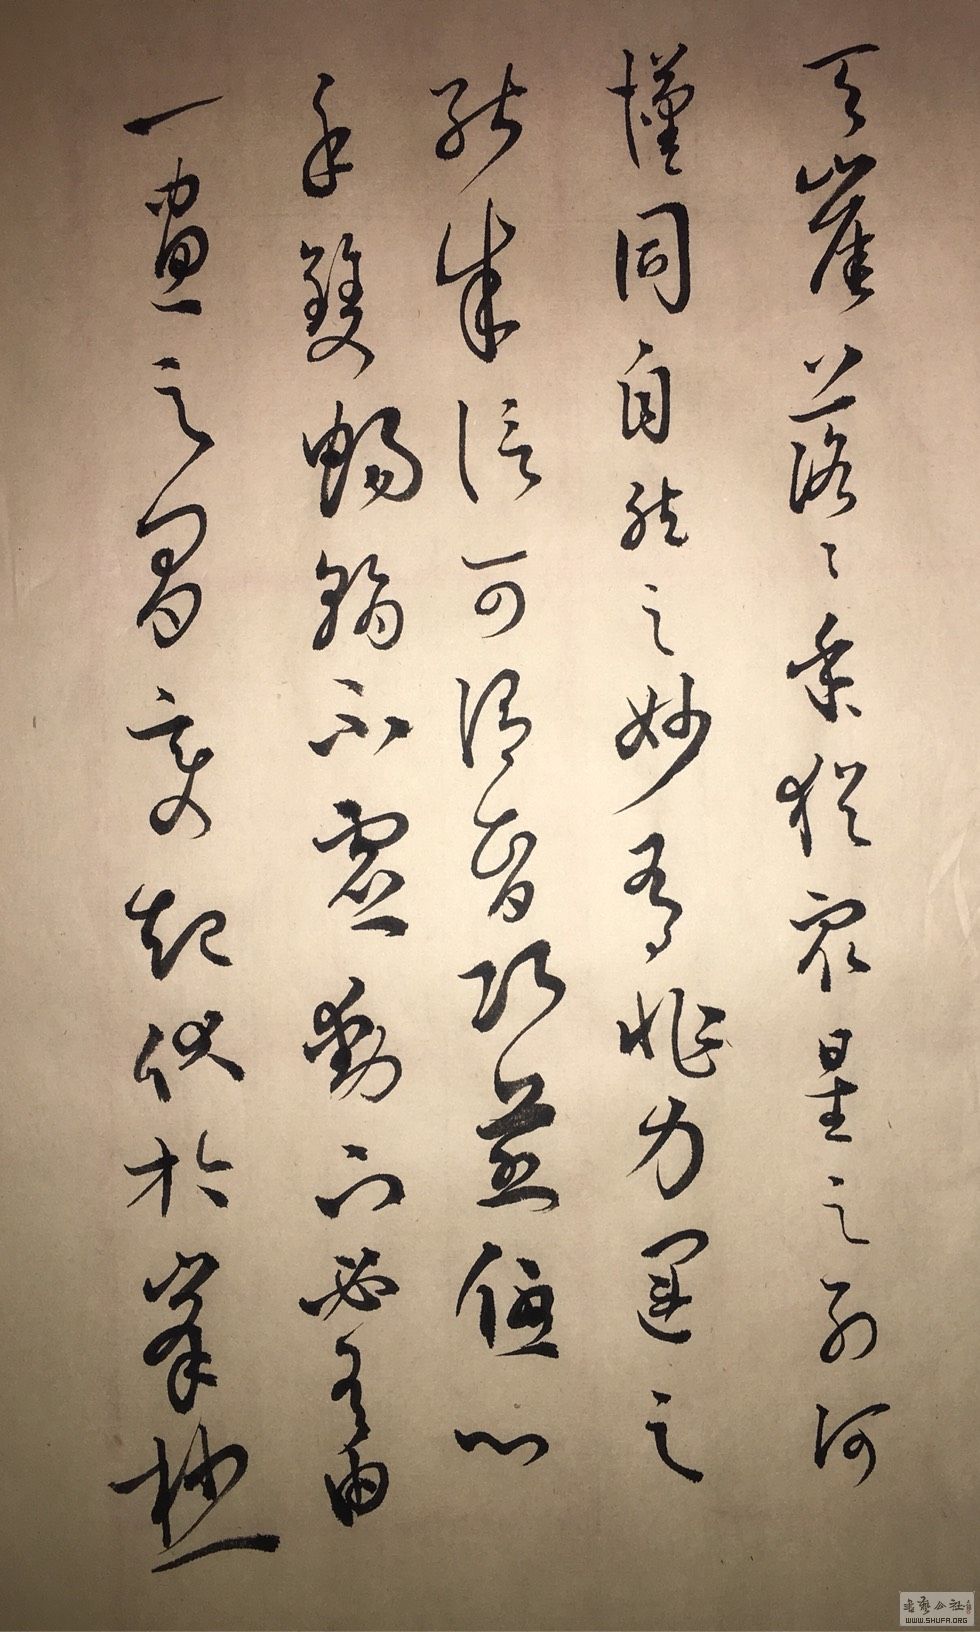 天崖落落乎猶眾星之列河
漢同自然之妙有非力運之
能成信可謂智巧兼優心
手雙暢翰不虛動下必有由
一畫之間變起伏於峯杪
書藝公社
WWW.SHUFA.ORG